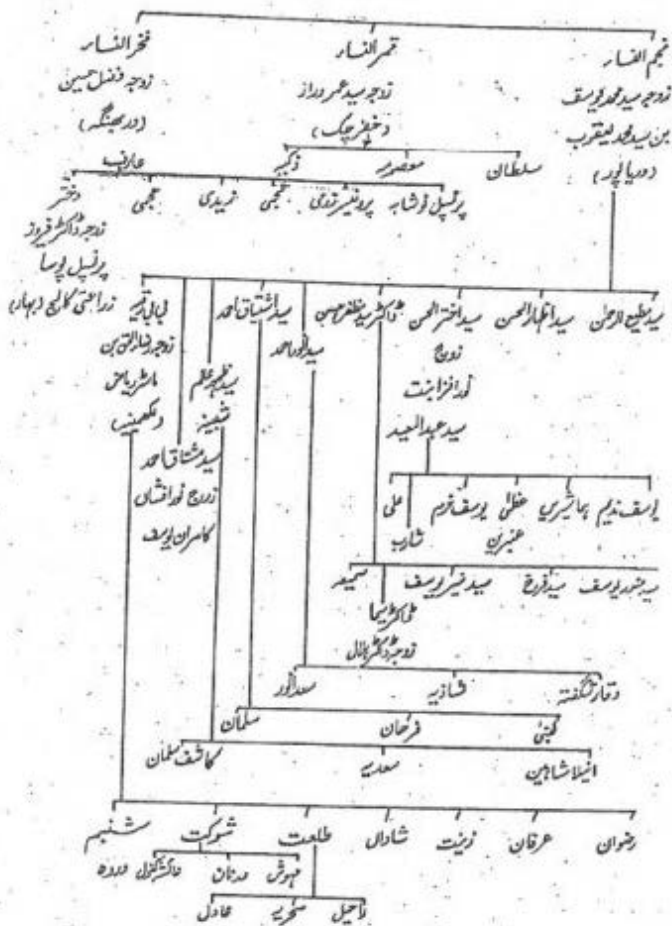 نجم النساء
زوجہ سید محمد یوسف
بن سید محمد یعقوب
(دریاپور)
قمر النساء
زوجہ سید عمر دراز
(خضر چک)
فخر النساء
زوجہ فضل حسین
(دربھنگہ)
سلطان
معصوم
ذکیہ
عارف
پرنسپل نوشابہ
پروفیسر زدی
نجمی
زیدی
نجمی
دختر
زوجہ ڈاکٹر فیروز
پرنسپل پوسا
زراعتی کالج (بہار)
سید مطیع الرحمٰن
سید اظہار الحسن
سید اختر الحسن
زوج
نور افزا بنت
سید عبدالعید
ڈاکٹر سید مظفر حسین
سید انور احمد
سید اشتیاق احمد
سید ظہیر عالم
شبینہ
سید مشتاق احمد
زوج نور افشاں
کامران یوسف
بی بی قریر
زوجہ
ماسٹر ریاض
یوسف ندیم
ہما شیری
عظمی
عنبرین
یوسف خرم
علی
شارب
یوسف
سید فرخ
سید منیر یوسف
سمیعہ
ڈاکٹر سیما
زوجہ ڈاکٹر بلال
وقار شگفتہ
شازیہ
سعد انور
مجتبیٰ
فرحان
سلمان
انیلا شاہین
سعدیہ
کاشف سلمان
رضوان
عرفان
زینت
شاداں
طلعت
شوکت
شبنم
مہوش
عدنان
عائشہ کنول
وردہ
راحیل
تحریم
عادل